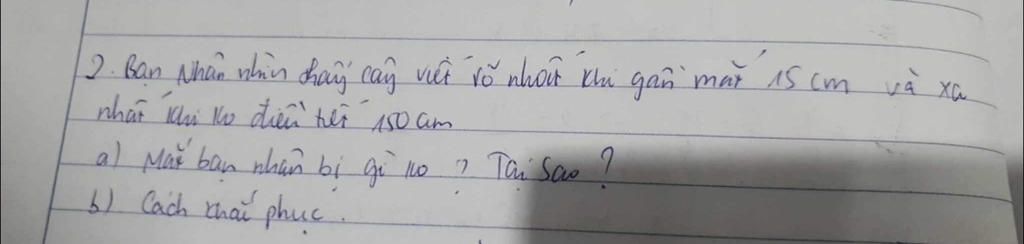 2. Bạn Nhân nhìn thấy cây viết rõ nhất khi gần mắt 15 cm và xa
nhất khi ko điều tiết 150 cm
a) Mắt bạn nhân bị gì ko ? Tại sao ?
b) Cách khắc phục.